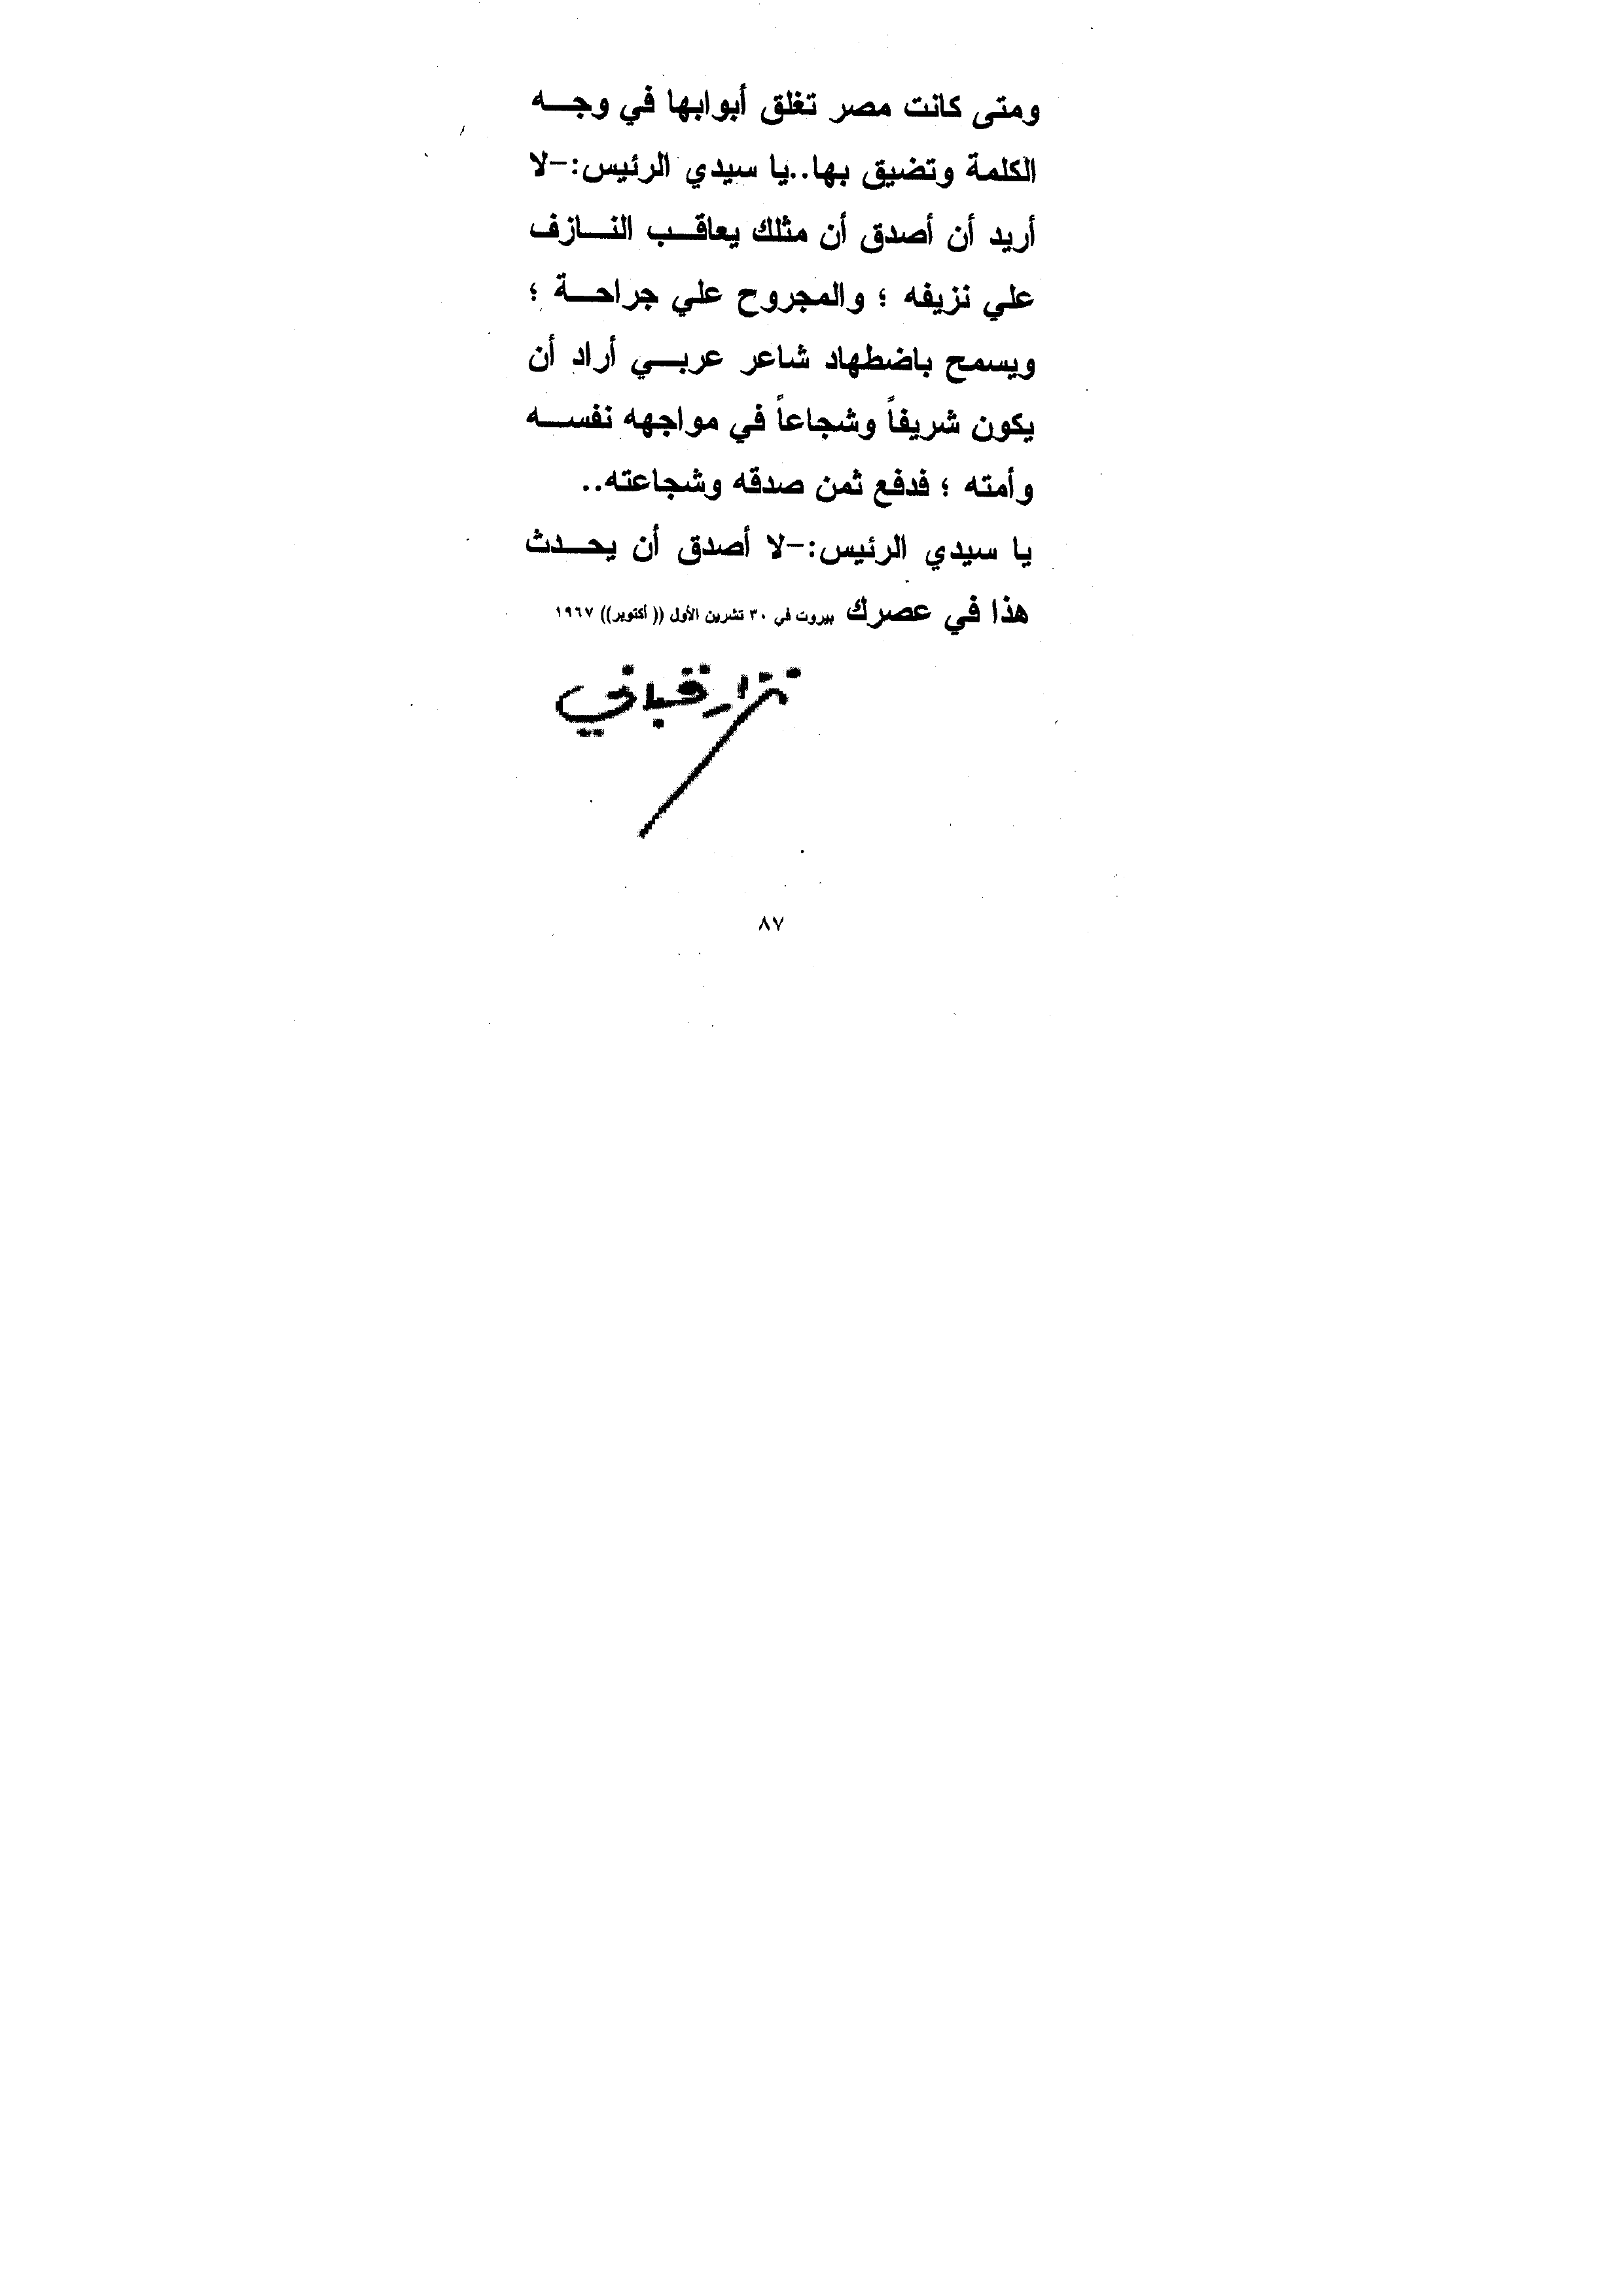 ومتى كانت مصر تغلق أبوابها في وجــه
الكلمة وتضيق بها..يا سيدي الرئيس:-لا
أريد أن أصدق أن مثلك يعاقــب النــازف
علي نزيفه ؛ والمجروح علي جراحــة ؛
ويسمح باضطهاد شاعر عربــي أراد أن
يكون شريفاً وشجاعاً في مواجهه نفســه
وأمته ؛ فدفع ثمن صدقه وشجاعته..
يا سيدي الرئيس:-لا أصدق أن يحــدث
هذا في عصرك بيروت في ٣٠ تشرين الأول (( أكتوبر)) ١٩٦٧
نزار قباني
٨٧